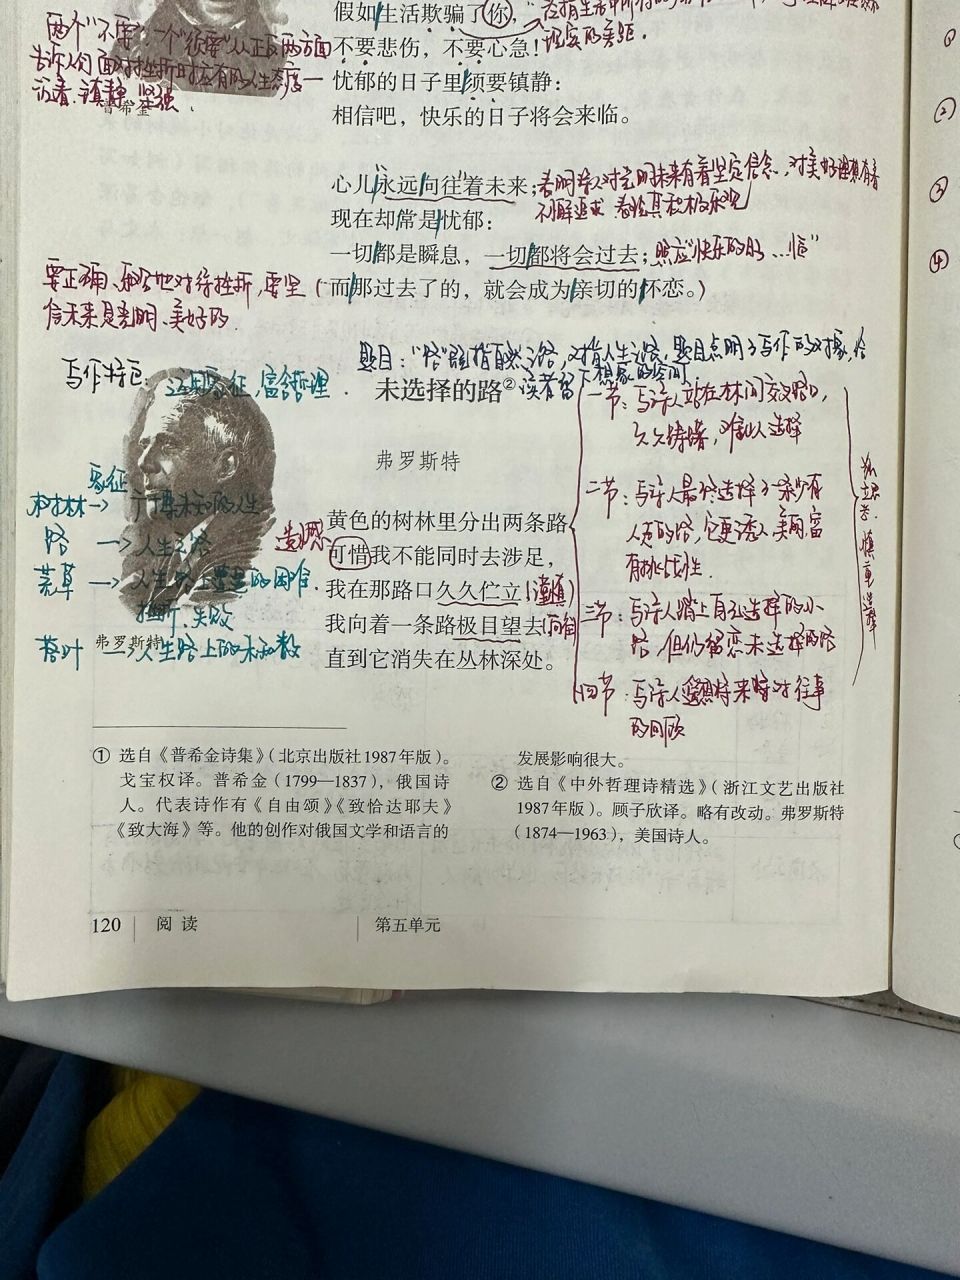 假如生活欺骗了你，
不要悲伤，不要心急！
现实的美距.
忧郁的日子里须要镇静：
相信吧，快乐的日子将会来临。
两个"不要"，一个"须要"从正反两方面
告诉人们面对挫折时应有的人生态度一
沉着、镇静、坚强.
普希金
心儿永远向往着未来；
表明诗人对光明未来有着坚定信念，对美好理想有着
不懈追求
现在却常是忧郁：
一切都是瞬息，一切都将会过去；
照应"快乐的日子...临"
而那过去了的，就会成为亲切的怀恋。
要正确、乐观地对待挫折，要坚
信未来是光明、美好的.
题目："路"既指自然之路，又指人生之路，题目点明了写作的对象，给
读者留下想象的空间
写作特色：运用象征，富含哲理.
未选择的路②
弗罗斯特
黄色的树林里分出两条路，
可惜我不能同时去涉足，
遗憾
我在那路口久久伫立，
(谨慎)
我向着一条路极目望去，
直到它消失在丛林深处。
象征
树林→
的人生
路→人生之路
荒草→人生路上遭遇的困难.
挫折、失败
落叶→人生路上的未知数
弗罗斯特
一节：写诗人站在林间交叉路口，
久久踌躇，难以选择
二节：写诗人最终选择了一条少有
人走的路，它更诱人、美丽，富
有挑战性.
三节：写诗人踏上自己选择的小
路，但仍留恋未选择的路
四节：写诗人遥想将来时对往事
的回顾
独立思考，慎重选择
① 选自《普希金诗集》（北京出版社1987年版）。
戈宝权译。普希金（1799—1837），俄国诗
人。代表诗作有《自由颂》《致恰达耶夫》
《致大海》等。他的创作对俄国文学和语言的
发展影响很大。
② 选自《中外哲理诗精选》（浙江文艺出版社
1987年版）。顾子欣译。略有改动。弗罗斯特
（1874—1963），美国诗人。
120 阅读 第五单元
②
③
④